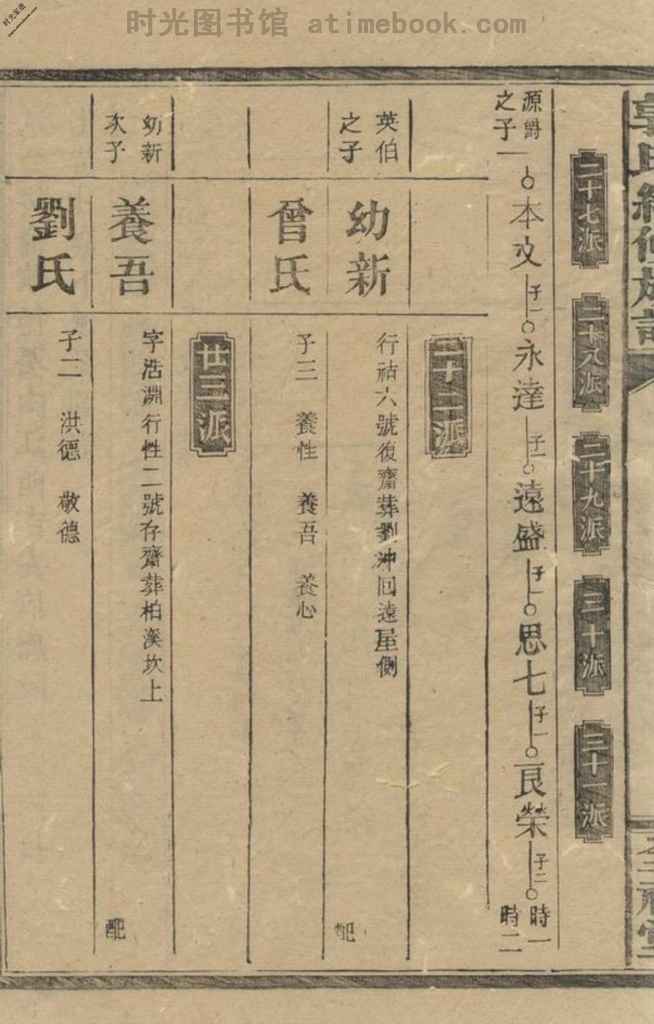 时光图书馆 - atimebook.com
郭氏續修族譜
二十七派
二十八派
二十九派
三十派
三十一派
源爵之子一
本文
子一
永達
子一
遠盛
子一
思七
子一
良榮
子二
時一
時二
二十二派
英伯之子
幼新
行祜六號復齋葬劉冲回遶屋側
配
曾氏
子三 養性 養吾 養心
廿三派
幼新次子
養吾
字浩淵行性二號存齋葬柏溪坎上
配
劉氏
子二 洪德 敬德